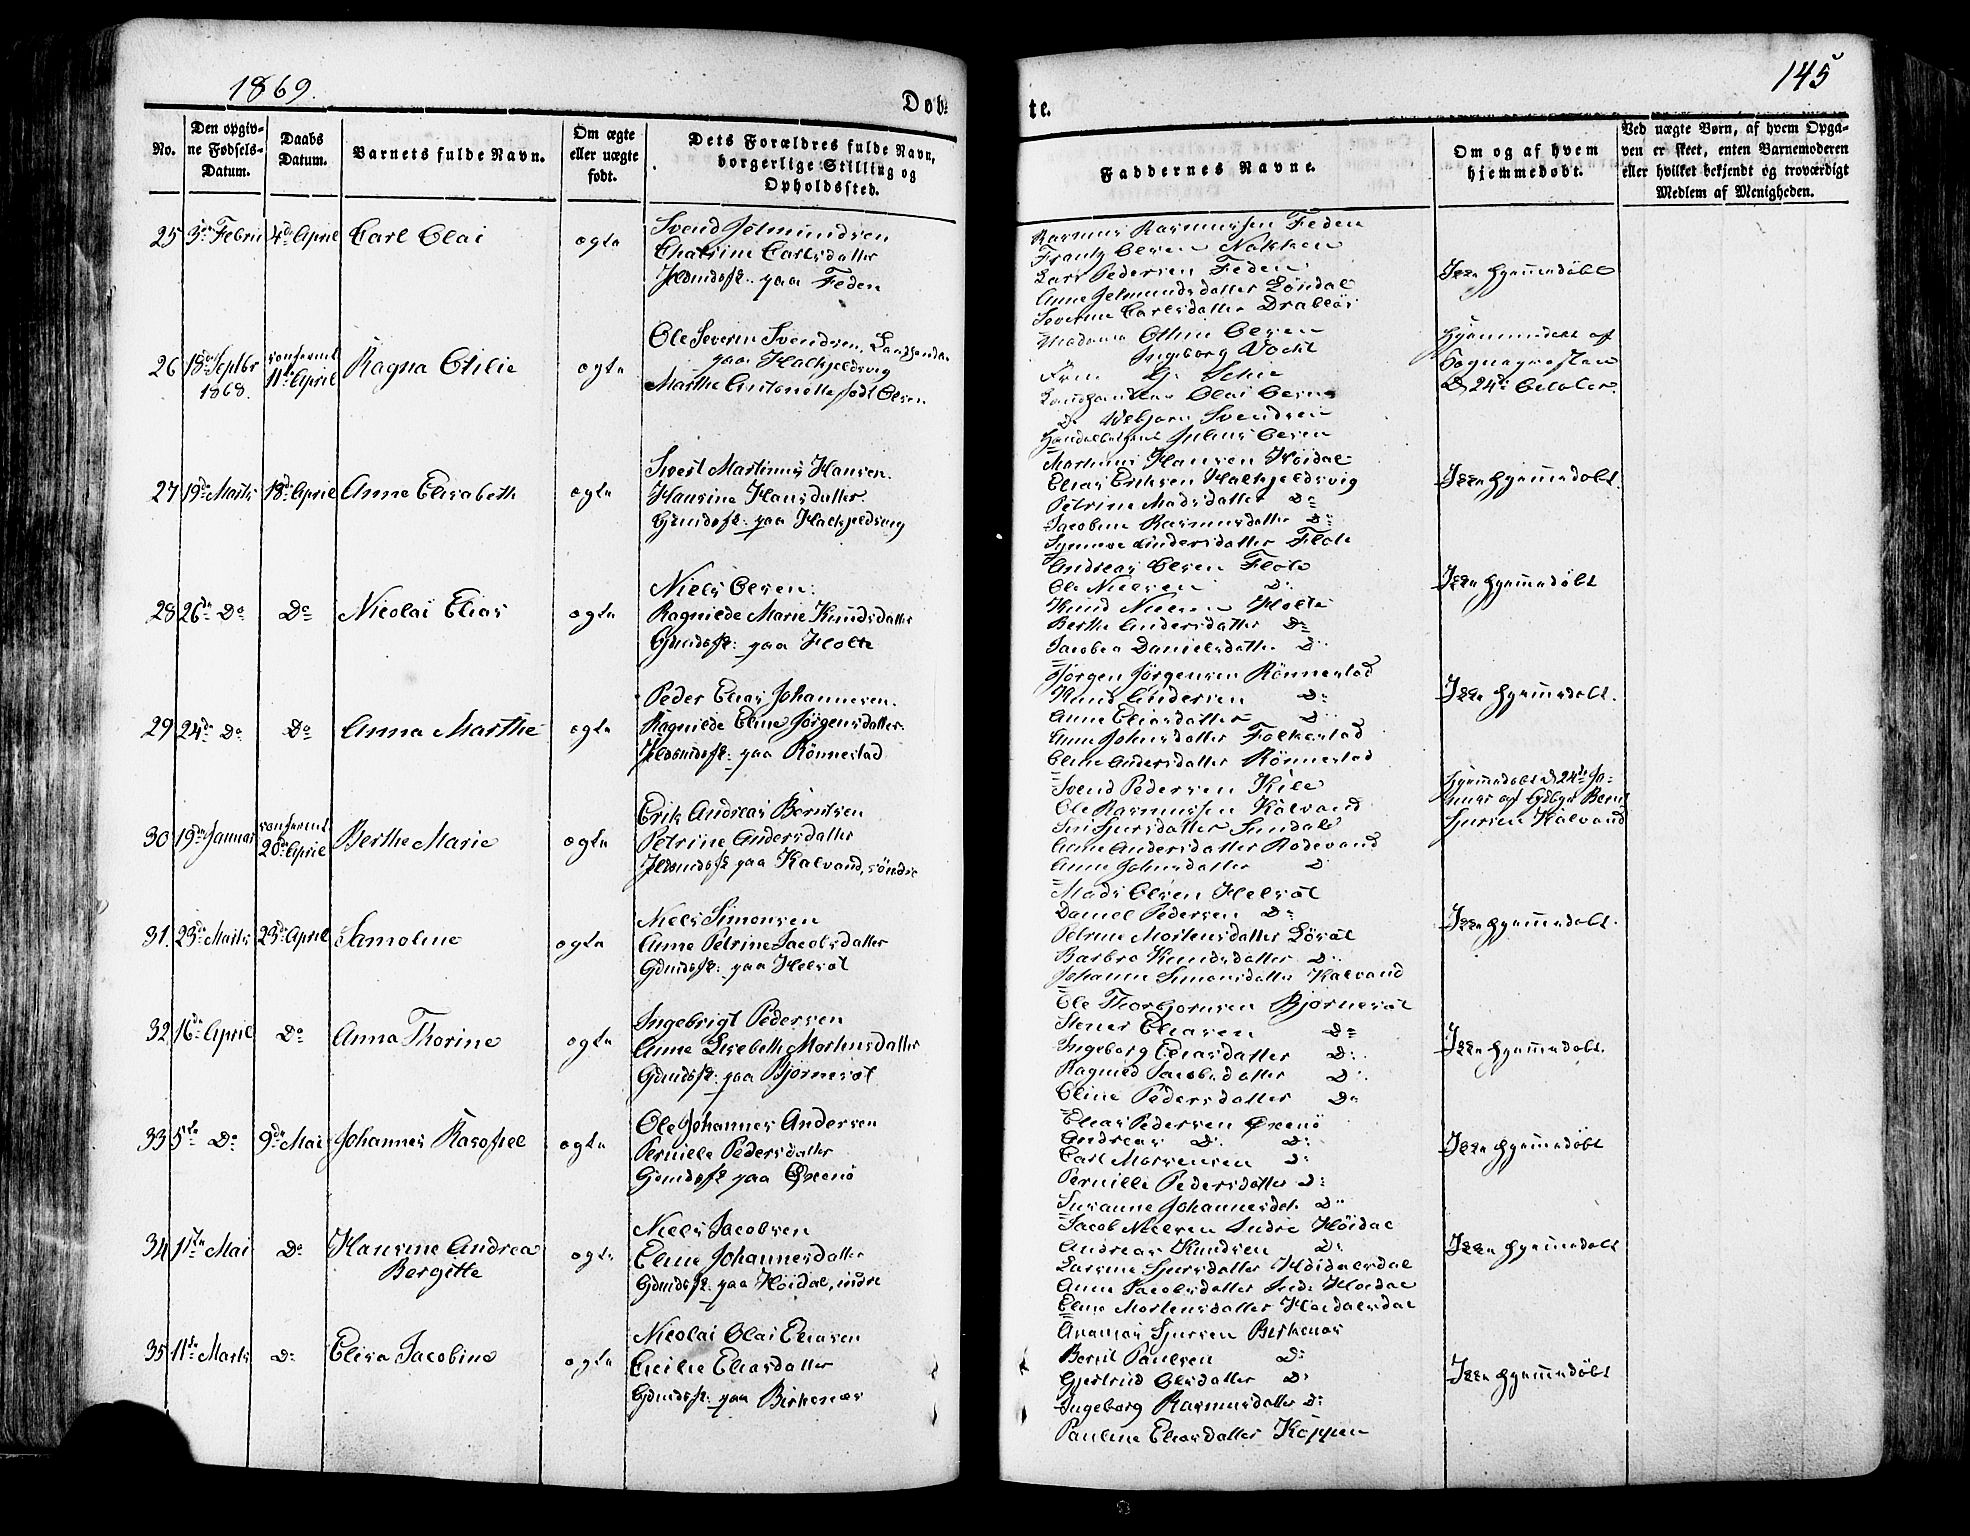 1869.
Døb-
te.
145
No.
Den opgiv-
ne Fødsels-
Datum.
Daabs
Datum.
Barnets fulde Navn.
Om ægte
eller uægte
født.
Dets Forældres fulde Navn,
borgerlige Stilling og
Opholdssted.
Faddernes Navne.
Om og af hvem
hjemmedøbt.
Ved uægte Børn, af hvem Opga-
ven er skeet, enten Barnemoderen
eller hvilket bekjendt og troværdigt
Medlem af Menigheden.
25 3die Febru 4de April Carl Olai ægte
Svend Jetmundsen
Chatrine Carlsdatter
Huusmdsf. paa Feden
Rasmus Rasmussen Feden
Frantz Olsen Nakken
Lars Pedersen Feden
Anne Jetmundsdatter Løndal
Severine Carlsdatter Drabløs
Ikke hjemmedøbt
26 18de Septbr 1868. confirmt 11te April Ragna Otilie ægte
Ole Severin Svendsen, Landhandler
paa Halkjeldsvig
Marthe Antonette født Olsen
Madame Oline Olsen
Ingeborg Vocht
Frue G. Schie
Landhandler Olai Olsen
Do Vebjørn Svendsen
Handelsbetjent Julius Olsen
Hjemmedøbt af
Sognepresten
D. 24de October.
27 19de Marts 18de April Anne Elisabeth ægte
Sivert Martinus Hansen.
Hansine Hansdatter.
Gdmdsf: paa Halkjeldsvig
Martinus Hansen Høidal
Elias Eriksen Halkjeldsvig
Petrine Madsdatter Do
Jacobine Rasmusdatter Do
Synneve Andersdatter Flote
Ikke hjemmedøbt.
28 26de Do Do Nicolai Elias ægte
Niels Olsen.
Ragnilde Marie Knudsdatter
Gdmdsf: paa Holte
Andreas Olsen Flote
Ole Nielsen Do
Knud Nielsen Holte
Berthe Andersdatter Do
Jacobea Danielsdatter Do
Ikke hjemmedøbt
29 24de Do Do Anna Marthe ægte
Peder Elias Johannesen.
Ragnilde Eline Jørgensdatter.
Huusmdsf: paa Rønnestad
Jørgen Jørgensen Rønnestad
Knud Andersen Do
Anne Eliasdatter Do
Anne Johnsdatter Folkestad
Oline Andersdatter Rønnestad
Ikke hjemmedøbt.
30 19de Januar confirmt 20de April Berthe Marie ægte
Erik Andreas Berntsen
Petrine Andersdatter
Huusmdsf: paa Kalvand, søndre
Svend Pedersen Kile
Ole Rasmussen Kalvand
Siri Sjursdatter Sundal
Anne Andersdatter Rødevand
Anne Johnsdatter Do
Hjemmedøbt d. 24de Ja-
nuar af Gdbgr. Bernt
Sjursen Kalvand
31. 23de Marts 23de April Samoline ægte
Niels Simonsen
Anne Petrine Jacobsdatter
Gdmdsf: paa Helsøt
Mads Olsen Helsøt
Daniel Pedersen Do
Petrine Mortensdatter Løsøt
Barbro Knudsdatter Do
Johanne Simonsdatter Kalvand
Ikke hjemmedøbt.
32 16de April Do Anna Thorine ægte
Ingebrigt Pedersen
Anne Lisebeth Mortensdatter
Gdmdsf: paa Bjørnesøt
Ole Thorbjørnsen Bjørnesøt
Stener Eliasen Do
Ingeborg Eliasdatter Do
Ragnild Jacobsdatter Do
Oline Pedersdatter Do
Ikke hjemmedøbt.
33 5te Do 9de Mai Johannes Kasofiel ægte
Ole Johannes Andersen
Pernille Pedersdatter
Gdmdsf: paa Ørenø
Elias Pedersen Ørenø
Andreas Do Do
Carl Mortensen Do
Pernille Pedersdatter Do
Susanne Johannesdt. Do
Ikke hjemmedøbt
34 1ste Mai Do Hansine Andrea
Bergitte ægte
Niels Jacobsen
Eline Johannesdatter
Gdmdsf: paa Høidal, indre
Jacob Nielsen Indre Høidal
Andreas Knudsen Do
Larsine Sjursdatter Høidalsdal
Anne Jacobsdatter Indr. Høidal
Eline Mortensdatter Høidalsdal
Ikke hjemmedøbt
35 11te Marts Do Elisa Jacobine ægte
Nicolai Olai Eliasen
Cecilie Eliasdatter
Gdmdsf: paa Birkenæs
Ananias Sjursen Berkenæs
Bernt Paulsen Do
Gjertrud Olsdatter Do
Ingeborg Rasmusdatter Do
Pauline Eliasdatter Koppen
Ikke hjemmedøbt